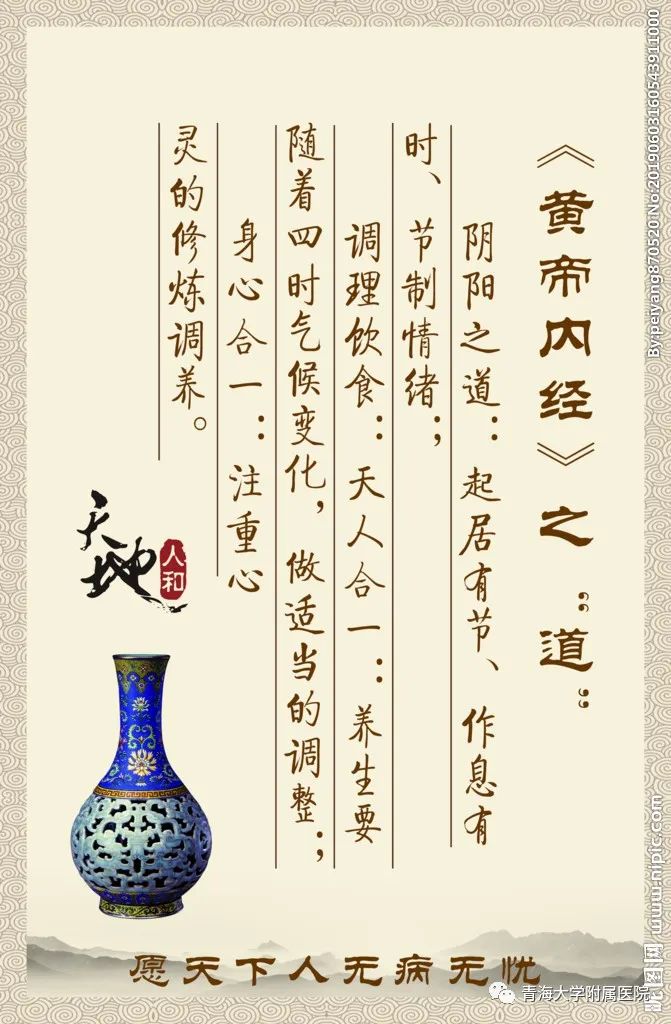 《黄帝内经》之“道”
阴阳之道：起居有节、作息有
时、节制情绪；
调理饮食：天人合一：养生要
随着四时气候变化，做适当的调整；
身心合一：注重心
灵的修炼调养。
天地
人和
愿天下人无病无忧
青海大学附属医院
昵图网 www.nipic.com
By:peiyang870520 No:20190603160543911000